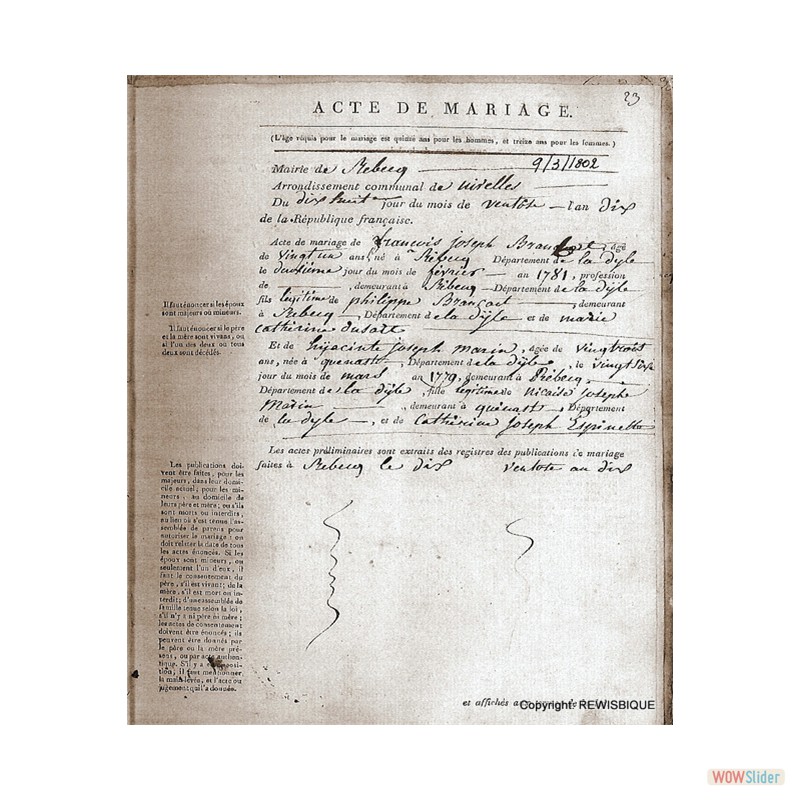 23
ACTE DE MARIAGE.
(L'âge requis pour le mariage est quinze ans pour les hommes, et treize ans pour les femmes.)
Mairie de Rebecq 9/3/1802
Arrondissement communal de nivelles
Du dix huit jour du mois de ventôse l'an dix
de la République française.
Acte de mariage de françois joseph âgé
de vingt un ans, né à Rebecq Département de la dyle
le deuxième jour du mois de février an 1781, profession
de , demeurant à Rebecq Département de la dyle
fils légitime de philippe Brancart , demeurant
à Rebecq , Département de la dyle et de marie
catherine dusart
Et de hyacinte joseph marin , âgée de vingt trois
ans, née à quenast , Département de la dyle , le vingt
jour du mois de mars an 1779, demeurant à Rebecq,
Département de la dyle , fille légitime de nicaise joseph
marin , demeurant à quenast , Département
de la dyle , et de catherine joseph Espinette
Les actes préliminaires sont extraits des registres des publications de mariage
faites à Rebecq le dix ventose an dix
Il faut énoncer si les époux
sont majeurs ou mineurs.
Il faut énoncer si le père
et la mère sont vivans, ou
si l'un des deux ou tous
deux sont décédés.
Les publications doi-
vent être faites, pour les
majeurs, dans leur domi-
cile actuel; pour les mi-
neurs, au domicile de
leurs père et mère; ou s'ils
sont morts ou interdits,
au lieu où s'est tenue l'as-
semblée de parens pour
autoriser le mariage: on
doit relater la date de tous
les actes énoncés. Si les
époux sont mineurs, ou
seulement l'un d'eux, il
faut le consentement du
père, s'il est vivant; de la
mère, s'il est mort ou in-
terdit; d'une assemblée de
famille tenue selon la loi,
s'il n'y a ni père ni mère;
les actes de consentement
doivent être énoncés; ils
peuvent être donnés par
le père ou la mère pré-
sens, ou par acte authen-
tique. S'il y a opposi-
tion, il faut mentionner
la main-levée, et l'acte ou
jugement qui l'a donnée.
et affichés aux
Copyright REWISBIQUE
WOWSlider